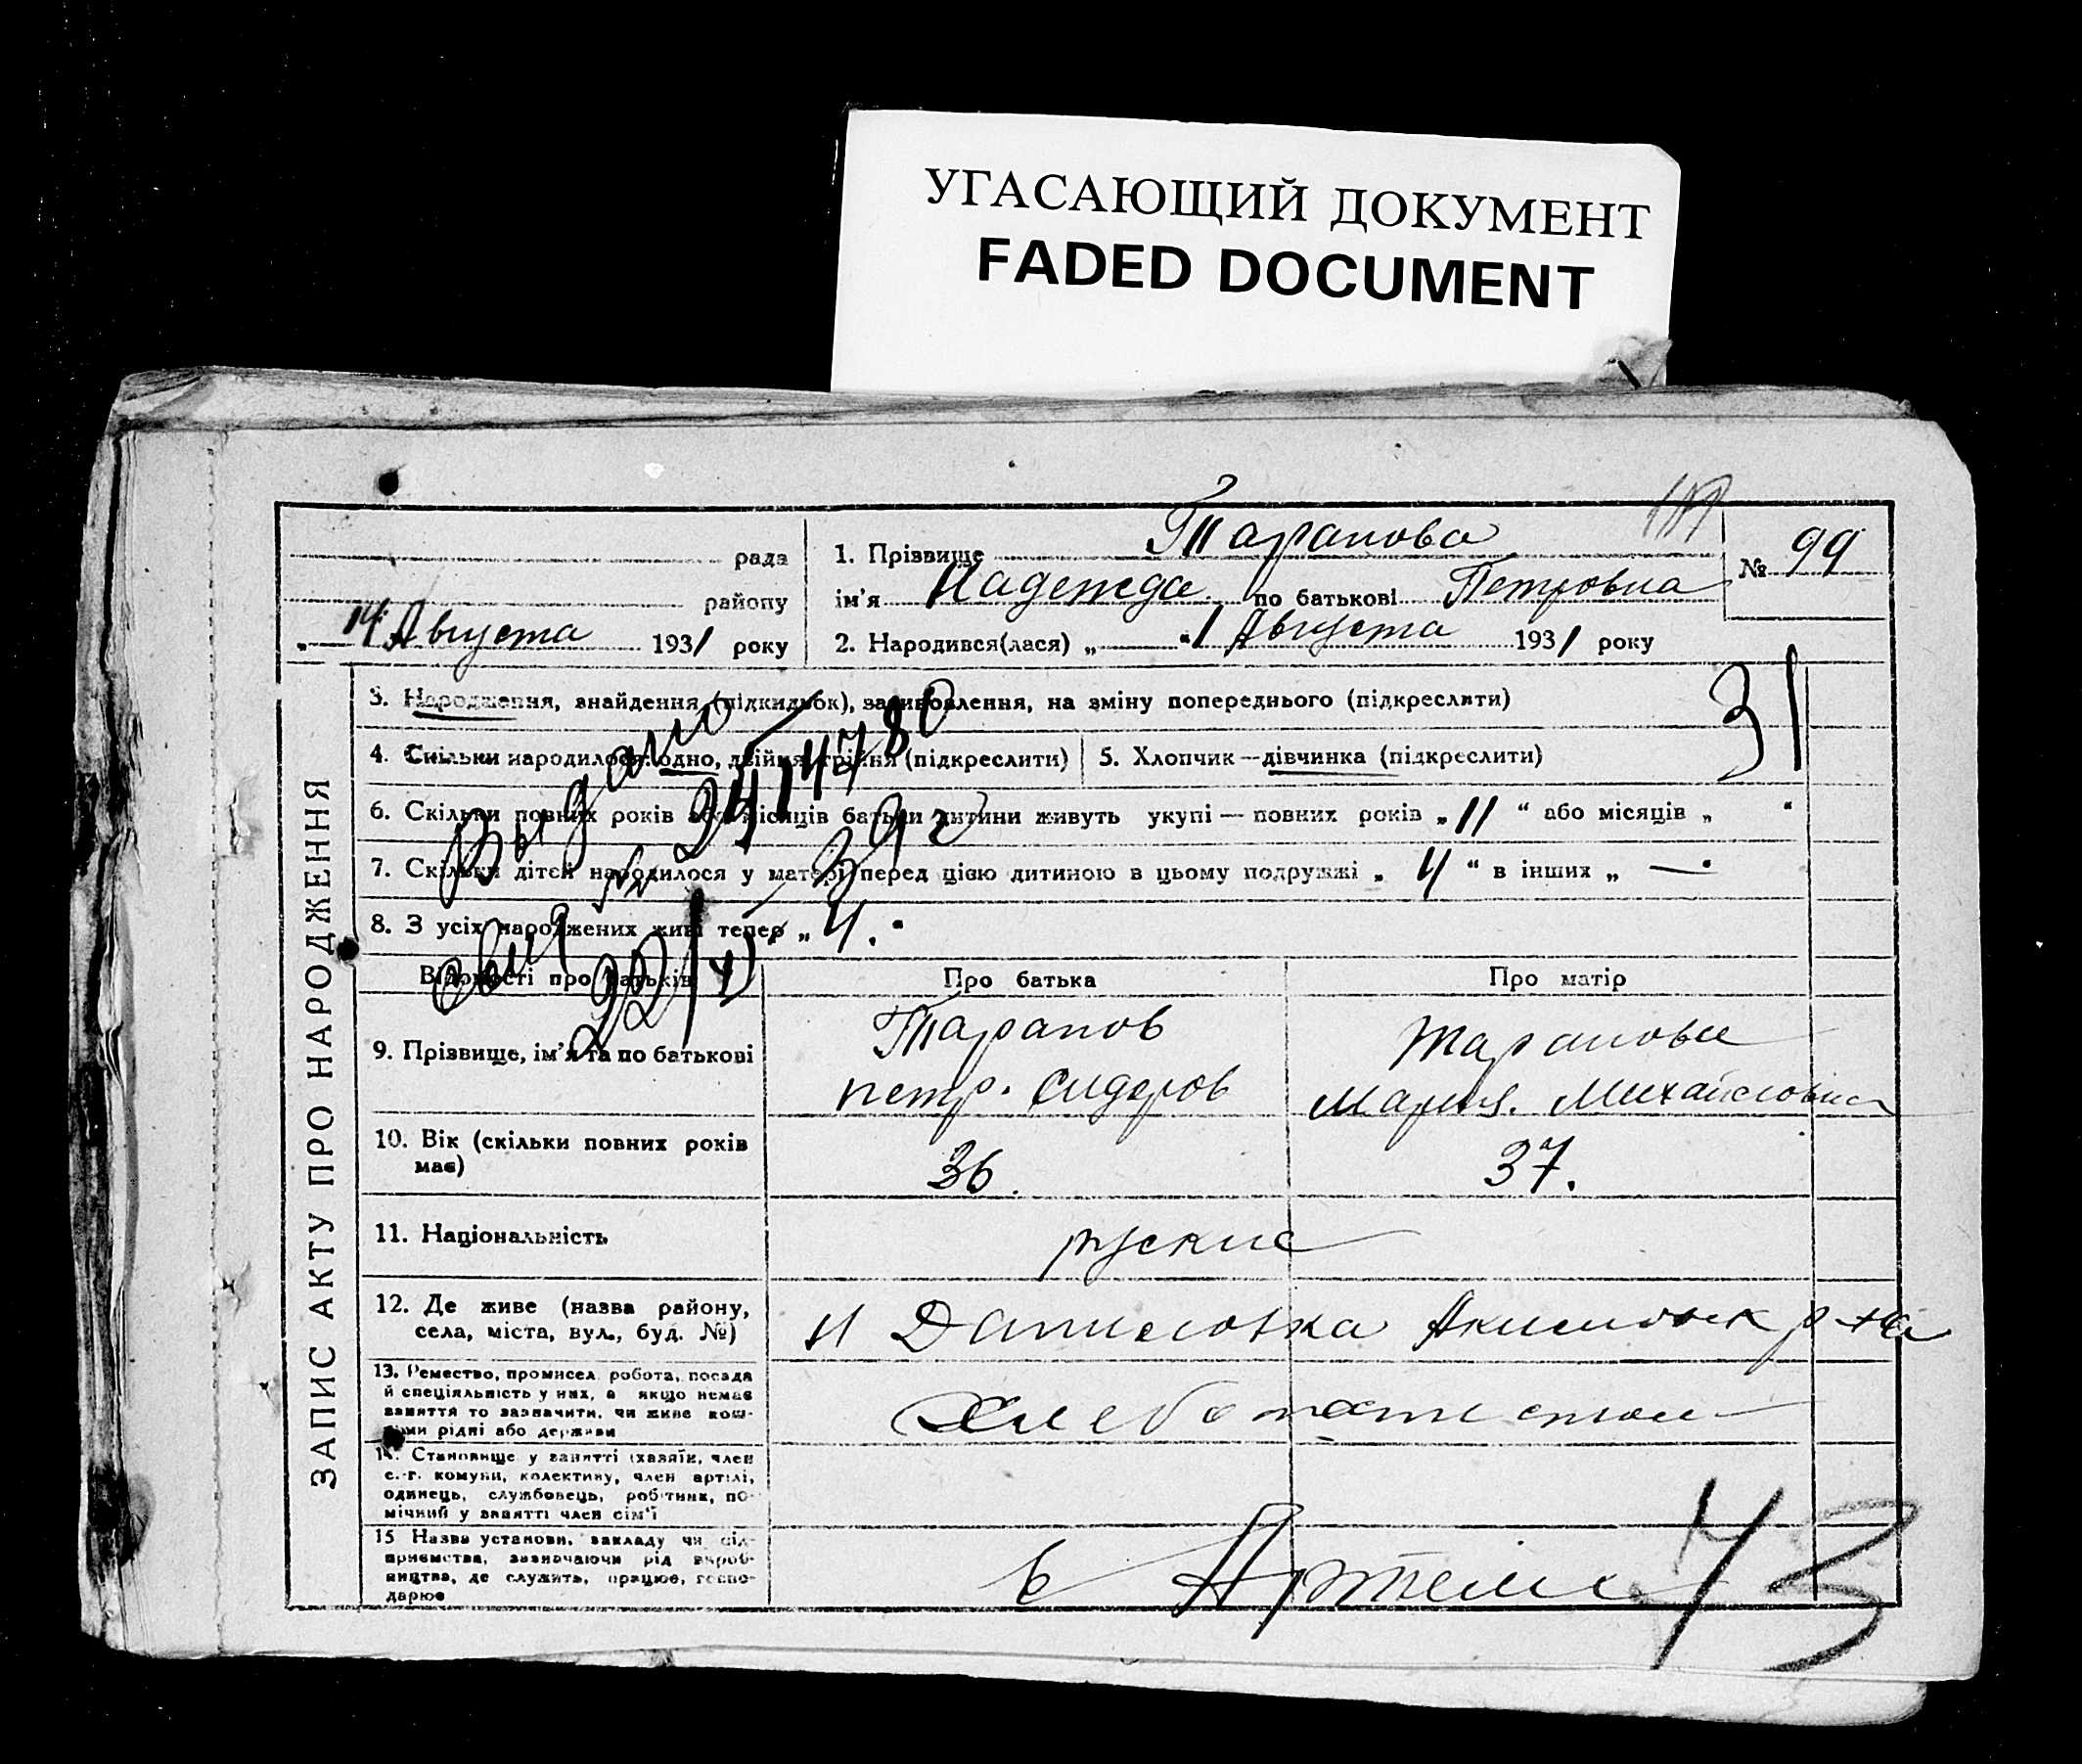 УГАСАЮЩИЙ ДОКУМЕНТ
FADED DOCUMENT
ЗАПИС АКТУ ПРО НАРОДЖЕННЯ
рада
району
„ 14 Августа 1931 року
1. Прізвище Тарапова
ім'я Надежда по батькові Петровна
2. Народився(лася) „ “ 1 Августа 1931 року
№ 99
3. Народження, знайдення (підкидьок), заминовлення, на зміну попереднього (підкреслити)
31
4. Скільки народилося: одно, двійня, трійня (підкреслити)
5. Хлопчик—дівчинка (підкреслити)
6. Скільки повних років або місяців батьки дитини живуть укупі — повних років „ 11 “ або місяців „ “
7. Скільки дітей народилося у матері перед цією дитиною в цьому подружжі „ 4 “ в інших „ —
8. З усіх народжених живі тепер „ 4. “
Выдано
22/
39 г
Відомості про батьків
Про батька
Про матір
9. Прізвище, ім'я та по батькові
Тарапов
петр. Сидоров
Тарапова
Мария. Михайловна
10. Вік (скільки повних років має)
36.
37.
11. Національність
руские
12. Де живе (назва району,
села, міста, вул., буд. №)
Даниловка Акимовск р-на
13. Ремество, промисел, робота, посада
й спеціяльність у них, а якщо немає
заняття то зазначити, чи живе кош-
тами рідні або держави
Хлебопашеством
14. Становище у занятті (хазяїн, член
с.-г. комуни, колективу, член артілі,
одинець, службовець, робітник, по-
мічний у занятті член сім'ї
15 Назва установи, закладу чи під-
приємства, зазначаючи рід вироб-
ництва, де служить, працює, госпо-
дарює
в Артели
43